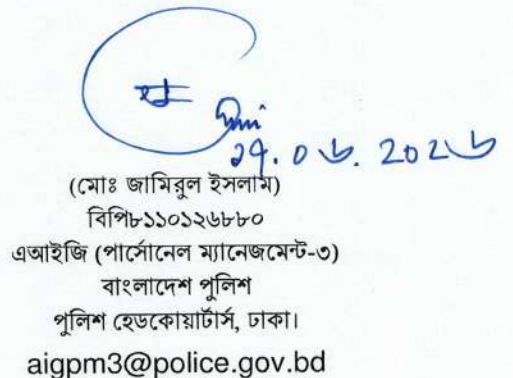 ২৭.০৬.২০২৬
(মোঃ জামিরুল ইসলাম)
বিপি৮১১০১২৬৮৮০
এআইজি (পার্সোনেল ম্যানেজমেন্ট-৩)
বাংলাদেশ পুলিশ
পুলিশ হেডকোয়ার্টার্স, ঢাকা।
aigpm3@police.gov.bd